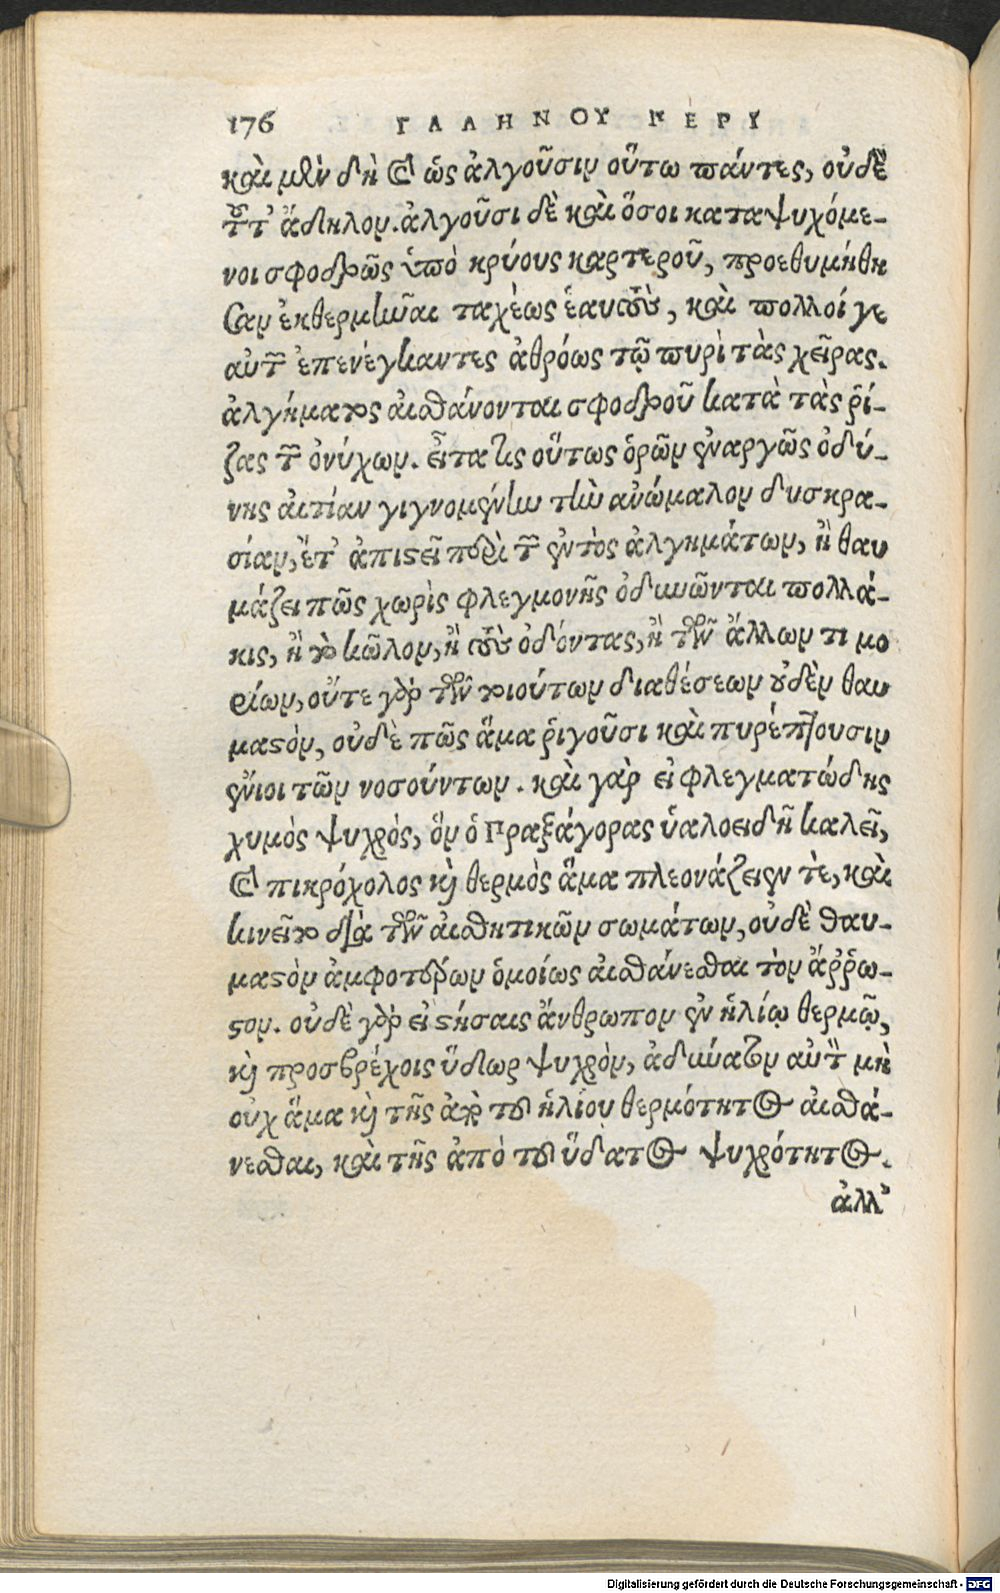 176 ΓΑΛΗΝΟΥ ΠΕΡΙ
καὶ μὲν δὴ καὶ ὡς ἀλγοῦσιν οὕτω πάντες, οὐδὲ
τοῦτ᾽ ἄδηλον. ἀλγοῦσι δὲ καὶ ὅσοι καταψυχόμε-
νοι σφοδρῶς ὑπὸ κρύους καρτεροῦ, προεθυμήθη
σαν ἐκθερμῆναι ταχέως ἑαυτοὺς, καὶ πολλοί γε
αὐτῶν ἐπενέγκαντες ἀθρόως τῷ πυρὶ τὰς χεῖρας.
ἀλγήματος αἰσθάνονται σφοδροῦ κατὰ τὰς ῥί-
ζας τῶν ὀνύχων. εἶτα τις οὕτως ὁρῶν ἐναργῶς ὀδύ-
νης αἰτίαν γιγνομένην τὴν ἀνώμαλον δυσκρα-
σίαν, ἔτ᾽ ἀπιστεῖ περὶ τῶν ἐντὸς ἀλγημάτων, ἢ θαυ
μάζει πῶς χωρὶς φλεγμονῆς ὀδυνῶνται πολλά-
κις, ἢ τὸ κῶλον, ἢ τοὺς ὀδόντας, ἢ τῶν ἄλλων τι μο
ρίων, οὔτε γὰρ τῶν τοιούτων διαθέσεων οὐδὲν θαυ
μαστὸν, οὐδὲ πῶς ἅμα ῥιγοῦσι καὶ πυρέττουσιν
ἔνιοι τῶν νοσούντων. καὶ γὰρ εἰ φλεγματώδης
χυμὸς ψυχρὸς, ὃν ὁ Πραξάγορας ὑαλοειδῆ καλεῖ,
καὶ πικρόχολος καὶ θερμὸς ἅμα πλεονάζειεν τὲ, καὶ
κινεῖτο διὰ τῶν αἰσθητικῶν σωμάτων, οὐδὲ θαυ-
μαστὸν ἀμφοτέρων ὁμοίως αἰσθάνεσθαι τὸν ἄῤῥω-
στον. οὐδὲ γὰρ εἰ στήσαις ἄνθρωπον ἐν ἡλίῳ θερμῷ,
καὶ προσβρέχοις ὕδωρ ψυχρὸν, ἀδύνατον αὐτὸν μὴ
οὐχ ἅμα καὶ τῆς ἀπὸ τοῦ ἡλίου θερμότητος αἰσθά-
νεσθαι, καὶ τῆς ἀπὸ τοῦ ὕδατος ψυχρότητος.
ἀλλ᾽
Digitalisierung gefördert durch die Deutsche Forschungsgemeinschaft - DFG